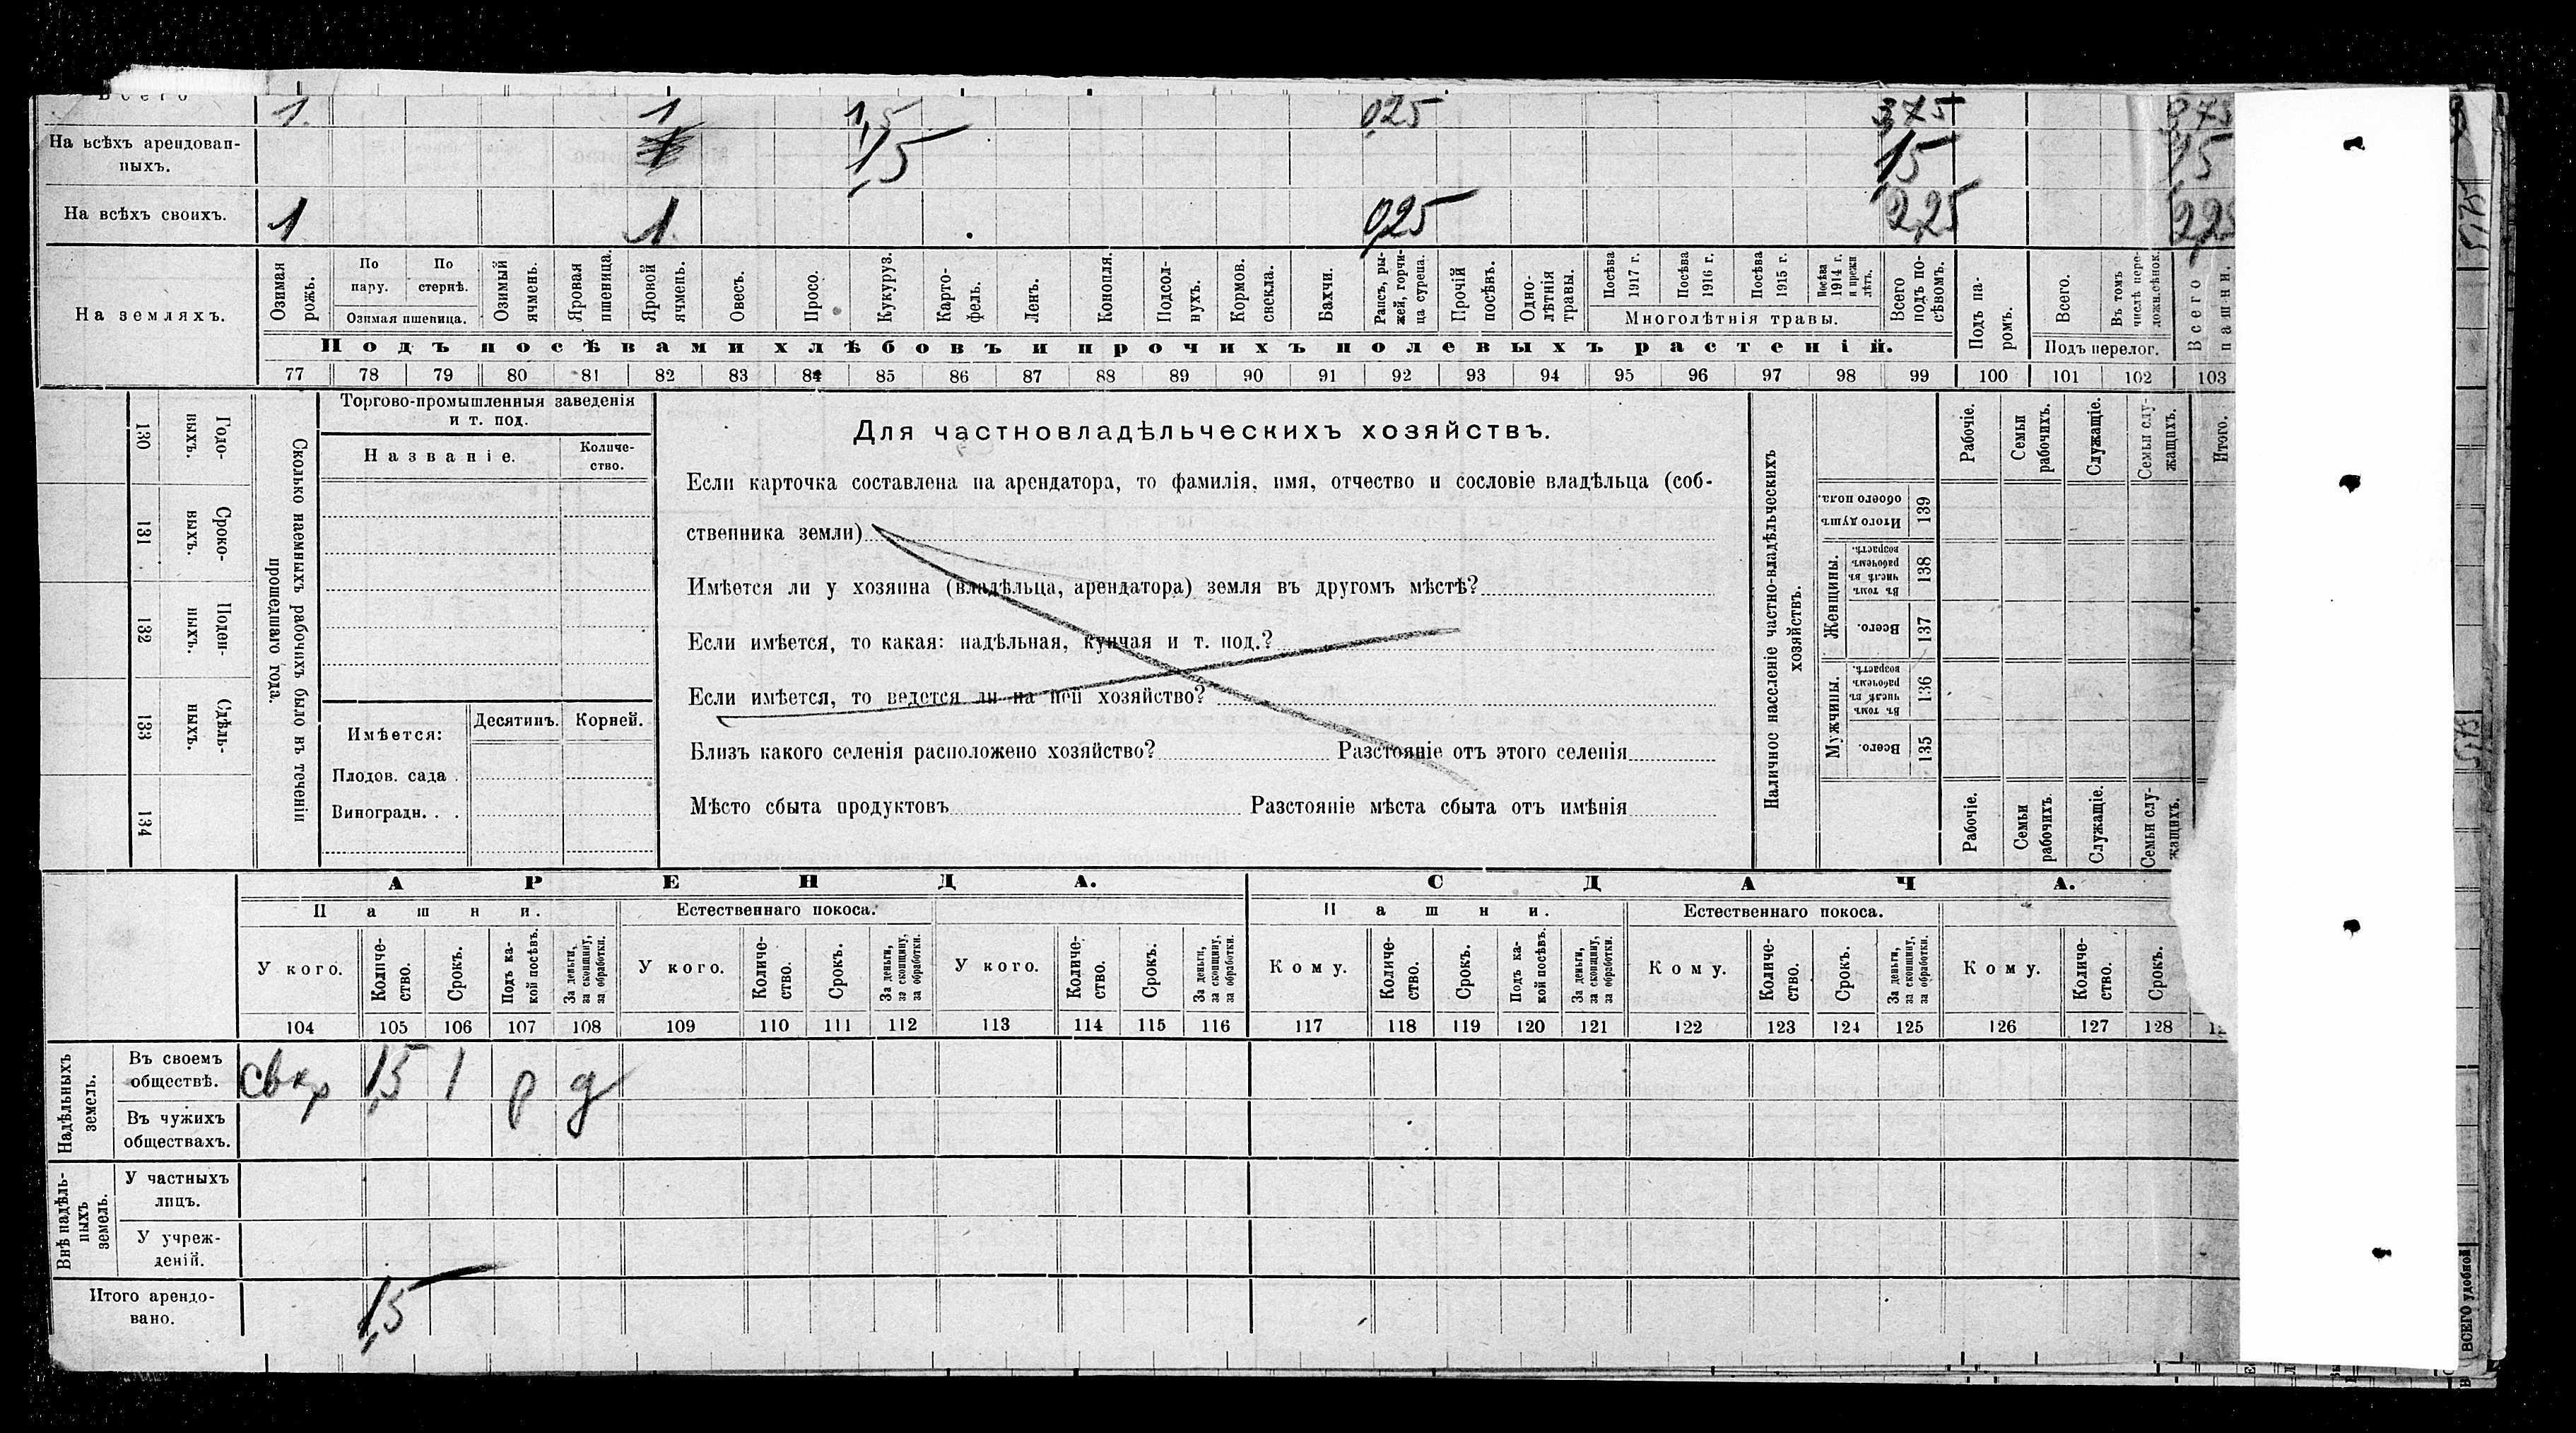 Всего 1 1 1,5 0,25 3,75 3,75
На всѣхъ арендован-
ныхъ. 1,5 1,5 1,5
На всѣхъ своихъ. 1 1 0,25 2,25 2,25
На земляхъ.
Озимая рожь.
По пару.
По стернѣ.
Озимая пшеница.
Озимый ячмень.
Яровая пшеница.
Яровой ячмень.
Овесъ.
Просо.
Кукуруз.
Карто-
фель.
Ленъ.
Конопля.
Подсол-
нухъ.
Кормов.
свскла.
Бахчи.
Рапсъ, ры-
жей, горчи-
ца сурепа.
Прочій
посѣвъ.
Одно-
лѣтнія
травы.
Посѣва
1917 г.
Посѣва
1916 г.
Посѣва
1915 г.
Посѣва
1914 г.
и прежн
лѣтъ.
Многолѣтнія травы.
Всего
подъ по-
сѣвомъ.
Подъ па-
ромъ.
Всего.
Въ томъ
числѣ пере-
ложн.сѣнок.
Подъ перелог.
Всего
пашни.
Подъ посѣвами хлѣбовъ и прочихъ полевыхъ растеній.
77 78 79 80 81 82 83 84 85 86 87 88 89 90 91 92 93 94 95 96 97 98 99 100 101 102 103
Сколько наемныхъ рабочихъ было въ теченіи
прошедшаго года.
Годо-
выхъ.
130
Сроко-
выхъ.
131
Поден-
ныхъ.
132
Сдѣль-
ныхъ.
133
134
Торгово-промышленныя заведенія
и т. под.
Названіе.
Количе-
ство.
Имѣется:
Десятинъ.
Корней.
Плодов. сада .
Виноградн. . .
Для частновладѣльческихъ хозяйствъ.
Если карточка составлена на арендатора, то фамилія, имя, отчество и сословіе владѣльца (соб-
ственника земли)
Имѣется ли у хозяина (владѣльца, арендатора) земля въ другомъ мѣстѣ?
Если имѣется, то какая: надѣльная, купчая и т. под.?
Если имѣется, то ведется ли на ней хозяйство?
Близъ какого селенія расположено хозяйство? Разстояніе отъ этого селенія
Мѣсто сбыта продуктовъ Разстояніе мѣста сбыта отъ имѣнія
Наличное населеніе частно-владѣльческихъ
хозяйствъ.
Рабочіе.
Семьи
рабочихъ.
Служащіе.
Семьи слу-
жащихъ.
Итого.
Итого душъ
обоего пола.
139
Женщины.
Въ томъ
числѣ въ
рабочемъ
возрастѣ.
138
Всего.
137
Мужчины.
Въ томъ
числѣ въ
рабочемъ
возрастѣ.
136
Всего.
135
Рабочіе.
Семьи
рабочихъ.
Служащіе.
Семьи слу-
жащихъ.
АРЕНДА. СДАЧА.
Пашни. Естественнаго покоса. Пашни. Естественнаго покоса.
У кого.
Количе-
ство.
Срокъ.
Подъ ка-
кой посѣвъ.
За деньги,
за скопщину,
за обработки.
У кого.
Количе-
ство.
Срокъ.
За деньги,
за скопщину,
за обработки.
У кого.
Количе-
ство.
Срокъ.
За деньги,
за скопщину,
за обработки.
Кому.
Количе-
ство.
Срокъ.
Подъ ка-
кой посѣвъ.
За деньги,
за скопщину,
за обработки.
Кому.
Количе-
ство.
Срокъ.
За деньги,
за скопщину,
за обработки.
Кому.
Количе-
ство.
Срокъ.
104 105 106 107 108 109 110 111 112 113 114 115 116 117 118 119 120 121 122 123 124 125 126 127 128
Надѣльныхъ
земель.
Въ своемъ
обществѣ. 1,5 1 р д
Въ чужихъ
обществахъ.
Внѣ надѣль-
ныхъ
земель.
У частныхъ
лицъ.
У учреж-
деній.
Итого арендо-
вано. 1,5
ВСЕГО удобной